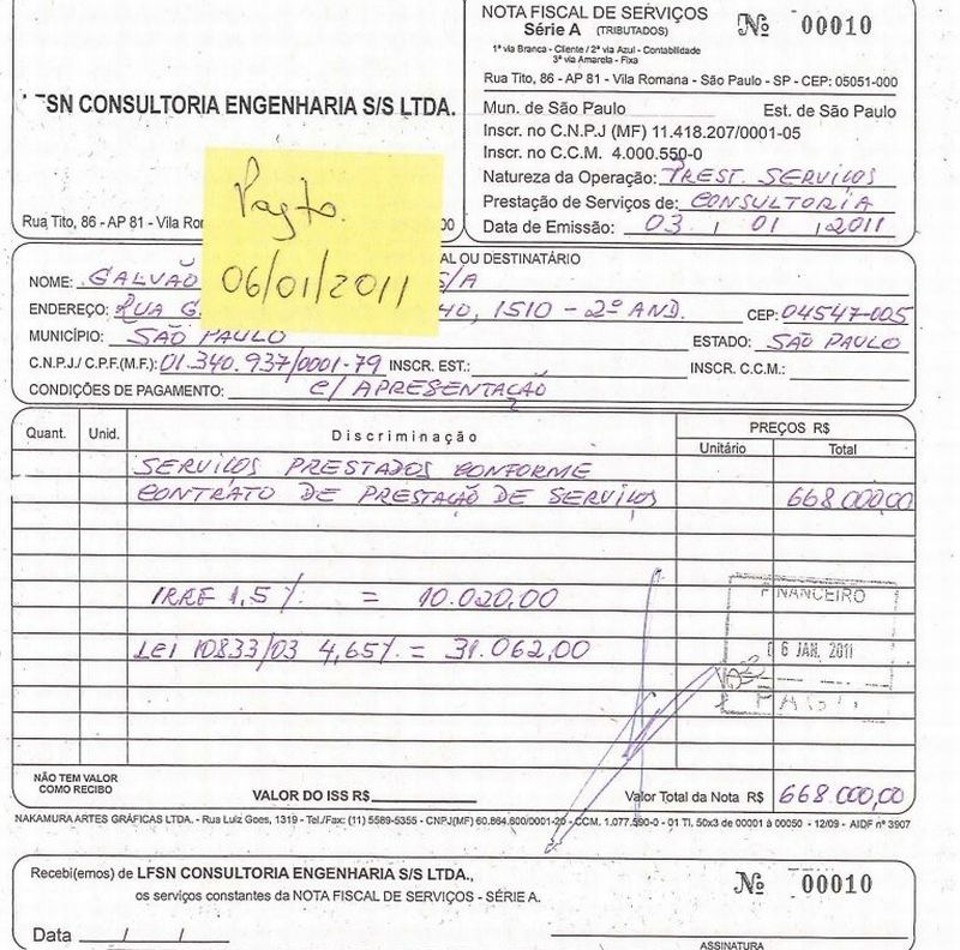 NOTA FISCAL DE SERVIÇOS
Série A (TRIBUTADOS)
Nº 00010
1ª via Branca - Cliente / 2ª via Azul - Contabilidade
3ª via Amarela - Fixa
Rua Tito, 86 - AP 81 - Vila Romana - São Paulo - SP - CEP: 05051-000
LFSN CONSULTORIA ENGENHARIA S/S LTDA.
Mun. de São Paulo Est. de São Paulo
Inscr. no C.N.P.J (MF) 11.418.207/0001-05
Inscr. no C.C.M. 4.000.550-0
Natureza da Operação: PREST. SERVIÇOS
Prestação de Serviços de: CONSULTORIA
Data de Emissão: 03 / 01 / 2011
Rua Tito, 86 - AP 81 - Vila Ro 00
Pagto.
06/01/2011
AL OU DESTINATÁRIO
NOME: GALVÃO S/A
ENDEREÇO: RUA G 40, 1510 - 2º AND. CEP: 04547-005
MUNICÍPIO: SÃO PAULO ESTADO: SÃO PAULO
C.N.P.J./ C.P.F.(M.F.): 01.340.937/0001-79 INSCR. EST.: INSCR. C.C.M.:
CONDIÇÕES DE PAGAMENTO: C/ APRESENTAÇÃO
Quant. Unid. Discriminação PREÇOS R$
Unitário Total
SERVIÇOS PRESTADOS CONFORME
CONTRATO DE PRESTAÇÃO DE SERVIÇOS 668.000,00
IRRF 1,5 % = 10.020,00
Lei 10833/03 4,65% = 31.062,00
FINANCEIRO
06 JAN. 2011
PAGO
NÃO TEM VALOR
COMO RECIBO
VALOR DO ISS R$ Valor Total da Nota R$ 668.000,00
NAKAMURA ARTES GRÁFICAS LTDA. - Rua Luiz Goes, 1319 - Tel./Fax: (11) 5589-5355 - CNPJ(MF) 60.864.800/0001-20 - CCM. 1.077.590-0 - 01 Tl. 50x3 de 00001 à 00050 - 12/09 - AIDF nº 3907
Recebi(emos) de LFSN CONSULTORIA ENGENHARIA S/S LTDA.,
os serviços constantes da NOTA FISCAL DE SERVIÇOS - SÉRIE A.
Nº 00010
Data / /
ASSINATURA